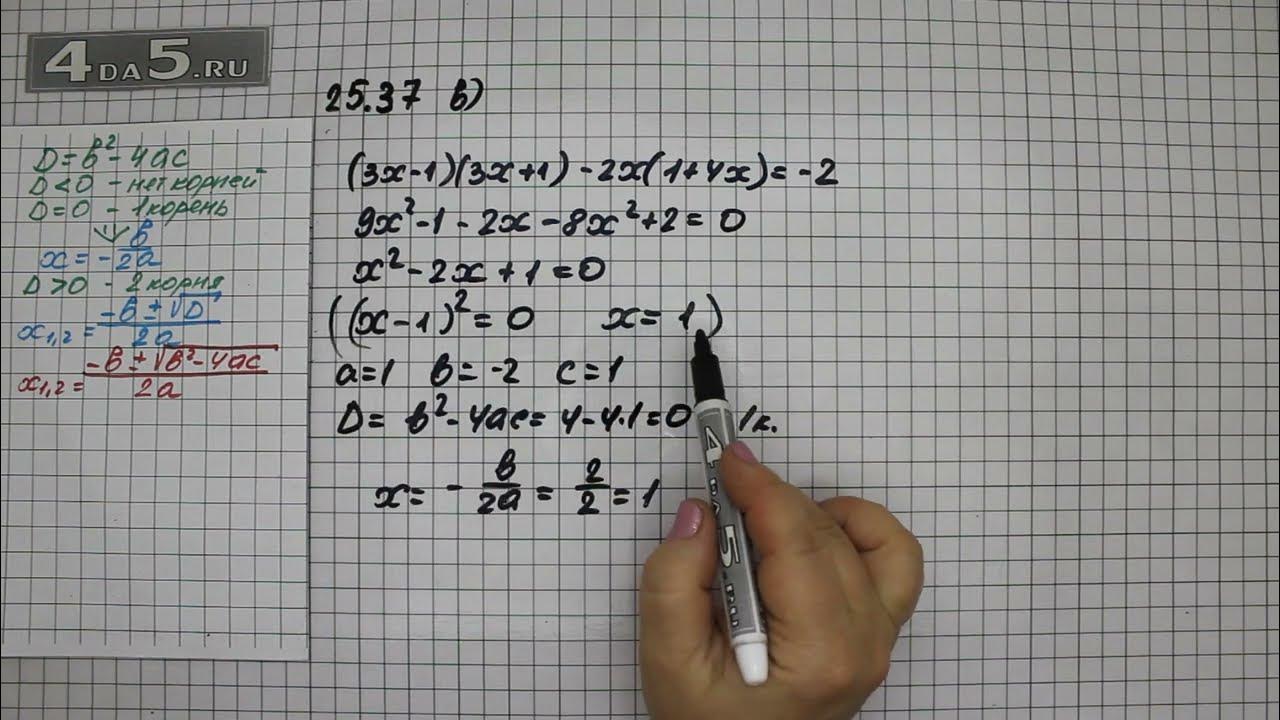 4DA5.RU
D = b² - 4ac
D < 0 - нет корней
D = 0 - 1 корень
x = - b/2a
D > 0 - 2 корня
x₁,₂ = (-b ± √D)/2a
x₁,₂ = (-b ± √(b² - 4ac))/2a
25.37 в)
(3x-1)(3x+1) - 2x(1+4x) = -2
9x² - 1 - 2x - 8x² + 2 = 0
x² - 2x + 1 = 0
((x-1)² = 0 x = 1)
a = 1 b = -2 c = 1
D = b² - 4ac = 4 - 4·1 = 0 1к.
x = - b/2a = 2/2 = 1
4DA5.RU